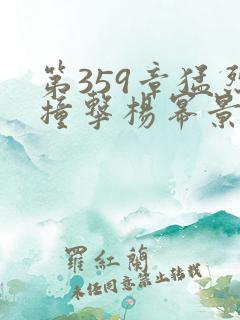 第359章猛烈
撞擊楊冪景
羅紅蘭
未經同意禁止轉載